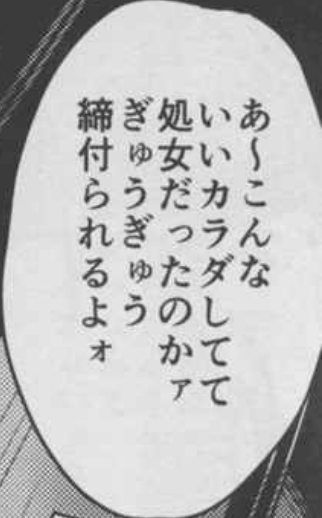 あ～こんな
いいカラダしてて
処女だったのかァ
ぎゅうぎゅう
締付られるよォ